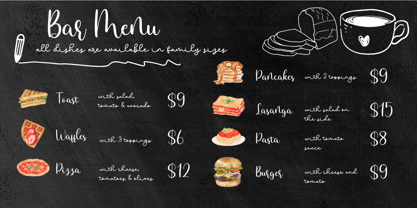 Bar Menu
all dishes are available in family sizes
Toast
with salad,
tomato & avocado
$9
Waffles
with 3 toppings
$6
Pizza
with cheese,
tomatoes & olives
$12
Pancakes
with 2 toppings
$9
Lasanga
with salad on
the side
$15
Pasta
with tomato
sauce
$8
Burger
with cheese and
tomato
$9